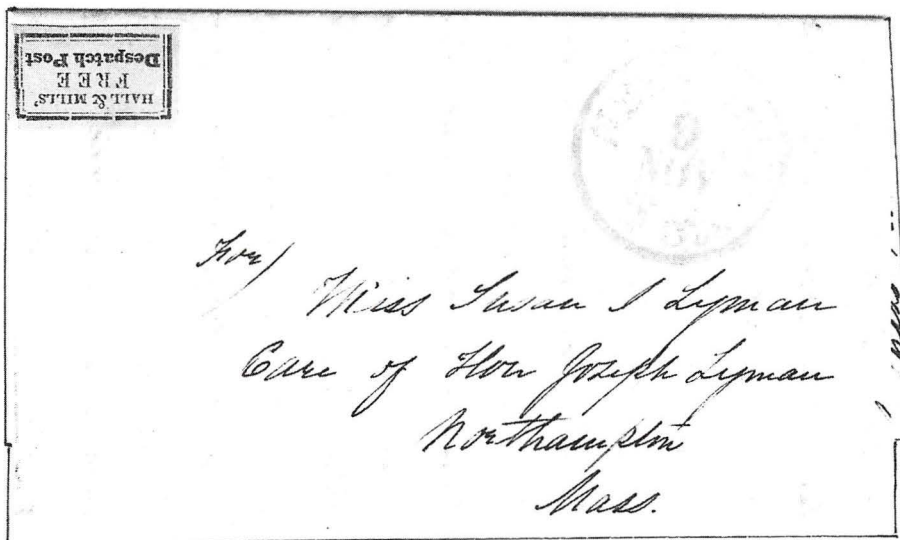 HALL & MILLS'
FREE
Despatch Post
8
NOV
For/
Miss Susan I Lyman
Care of Hon Joseph Lyman
Northampton
Mass.